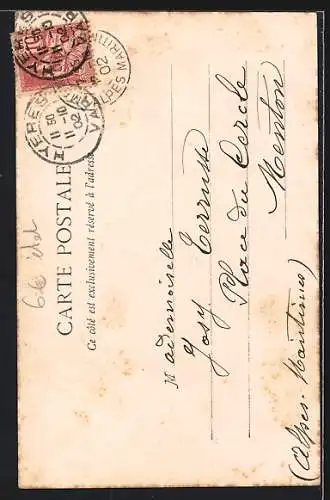 HYERES
VAR
11 50
11-10
02
ALPES MARITIM
02
CARTE POSTALE
Ce côté est exclusivement réservé à l'adresse
Mademoiselle
Josy
Place du Cercle
Menton
(Alpes-Maritimes)